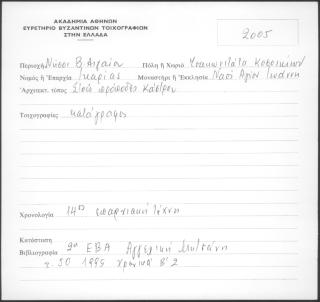 ΑΚΑΔΗΜΙΑ ΑΘΗΝΩΝ
ΕΥΡΕΤΗΡΙΟ ΒΥΖΑΝΤΙΝΩΝ ΤΟΙΧΟΓΡΑΦΙΩΝ
ΣΤΗΝ ΕΛΛΑΔΑ
2005
Περιοχή Νήσοι Β. Αιγαίου Πόλη ἤ Χωριό
Νομός ἤ Ἐπαρχία Ικαρίας Μοναστήρι ἤ Ἐκκλησία Ναός Αγίου Ιωάννη
Ἀρχιτεκτ. τύπος Κάστρου
Τοιχογραφίες κατάγραφος
Χρονολογία 14ος επαρχιακή τέχνη
Κατάσταση
Βιβλιογραφία 2η ΕΒΑ Αγγελική Μιτσάνη
τ. 50 1995 Χρονικά Β'2